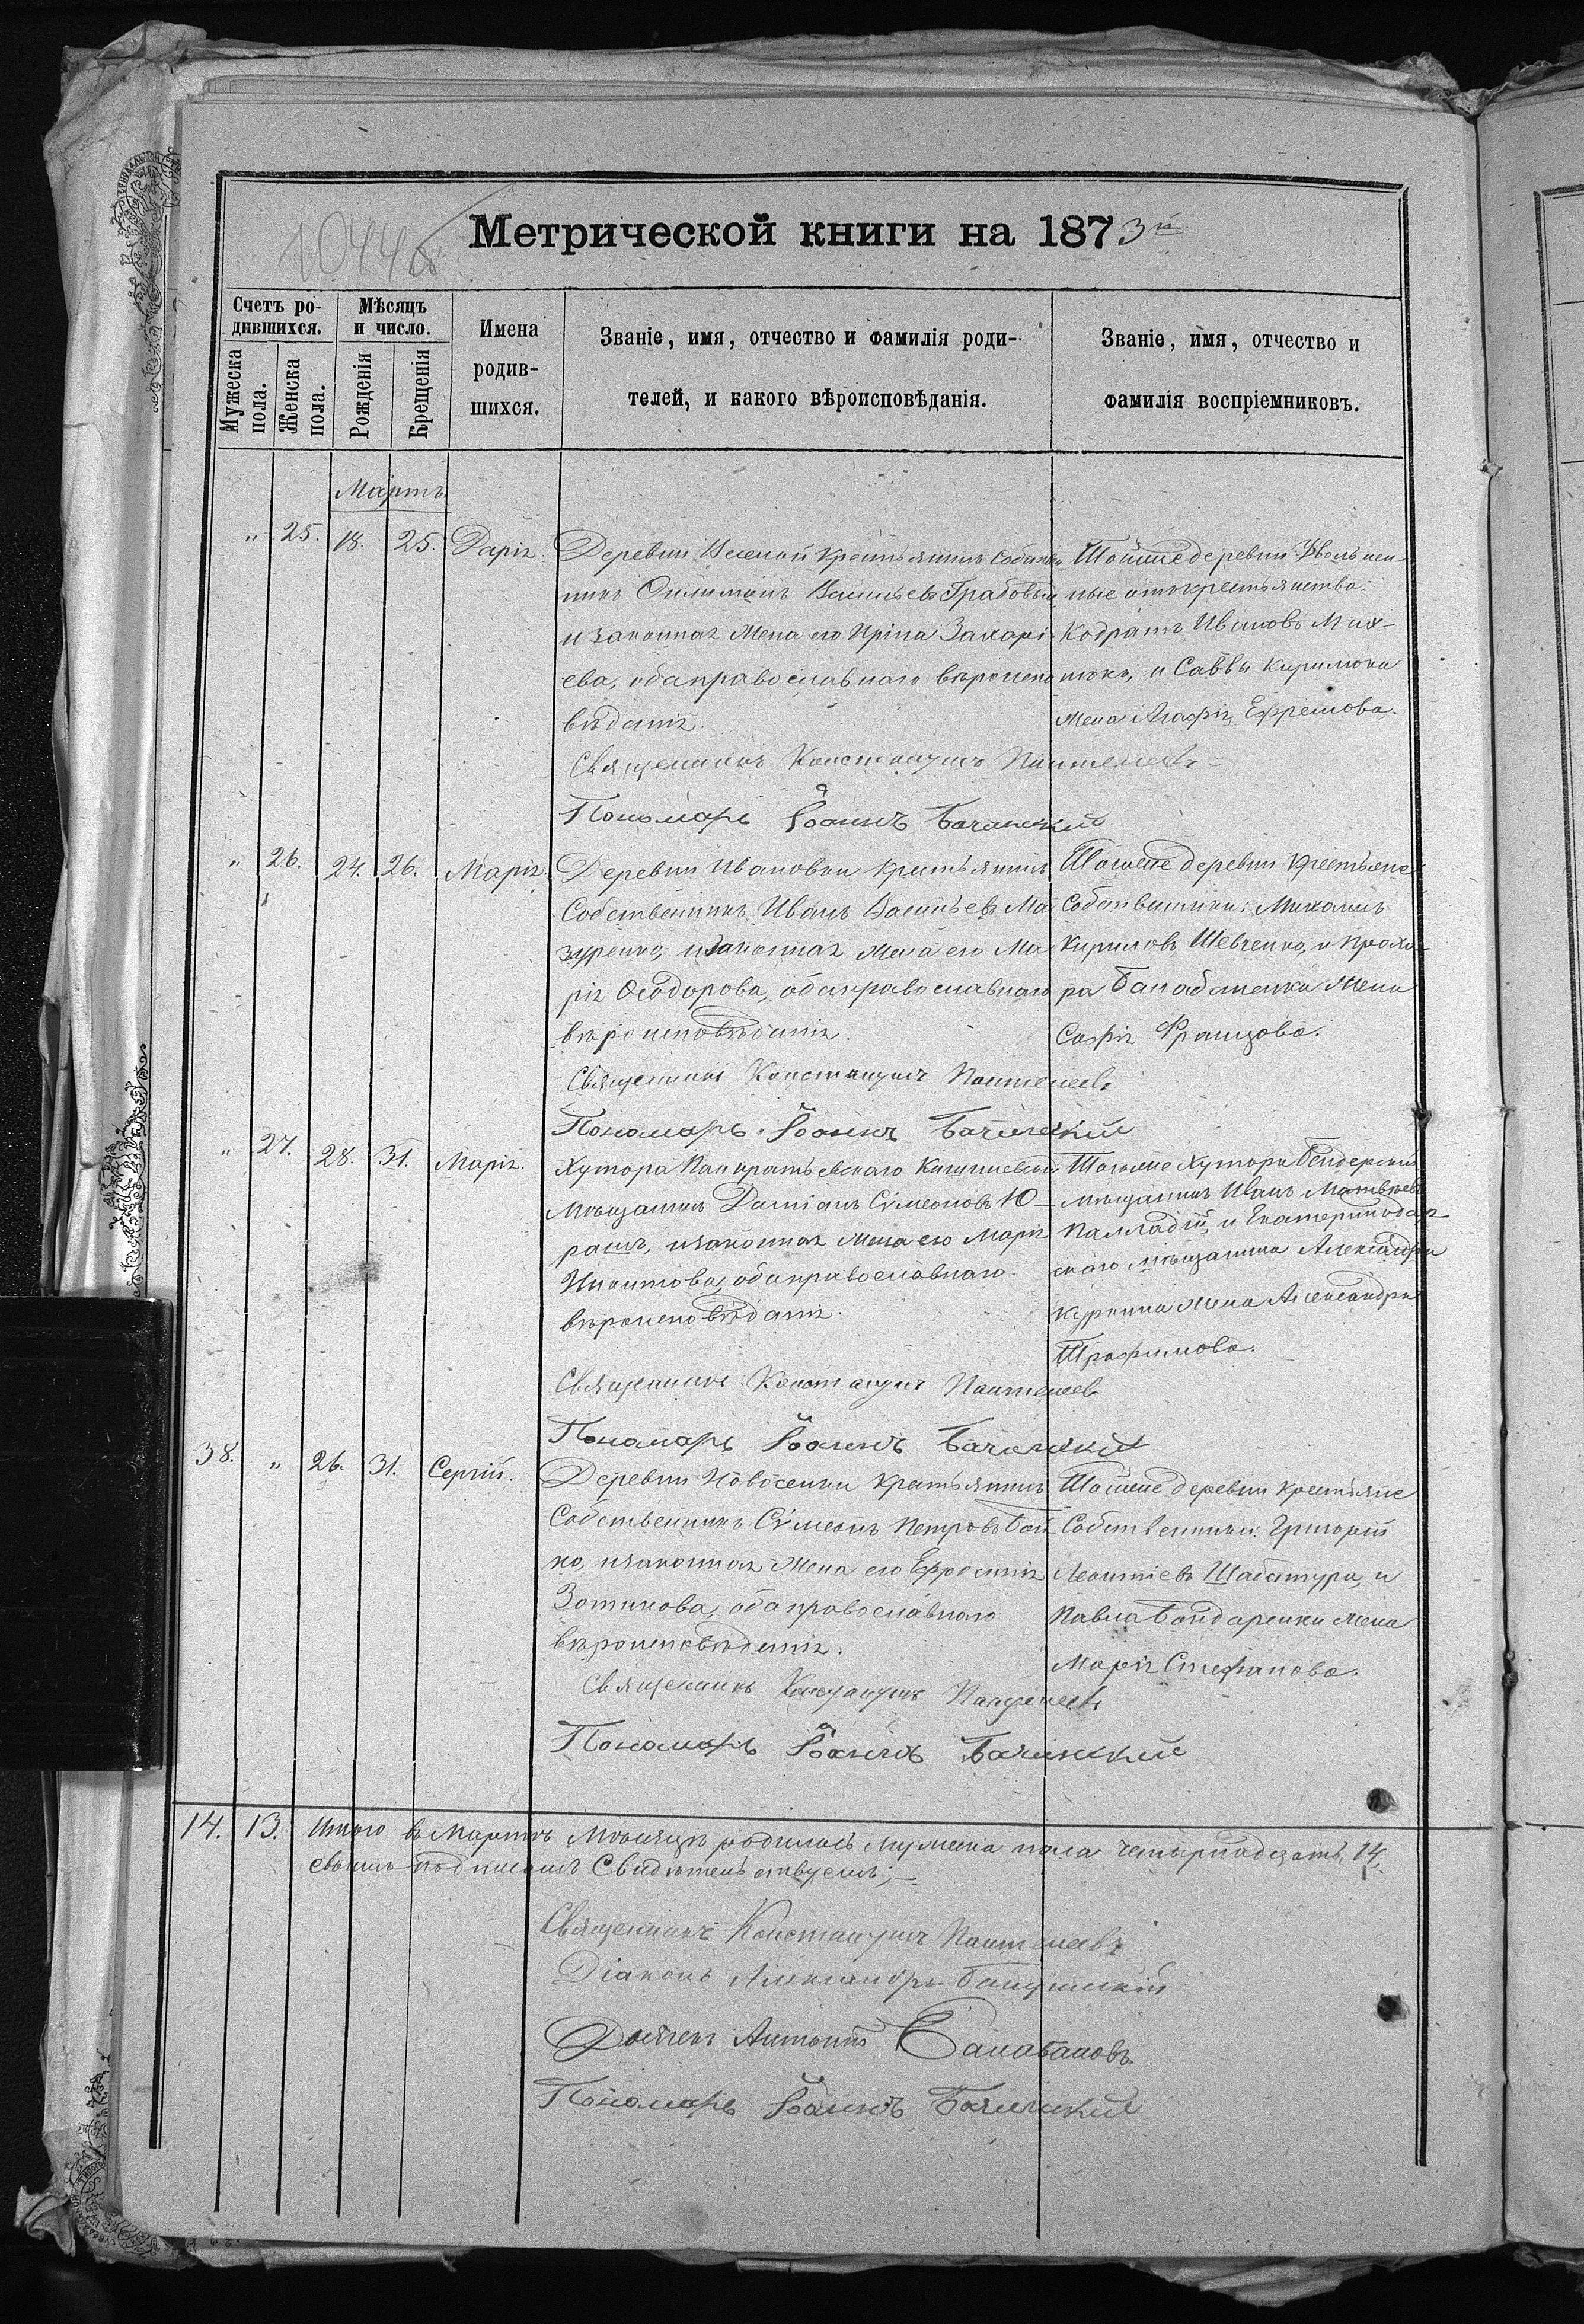 1044об
Метрической книги на 1873й
Счетъ родившихся.
Мѣсяцъ и число.
Мужеска пола.
Женска пола.
Рожденія
Крещенія
Имена родившихся.
Званіе, имя, отчество и фамилія роди-
телей, и какого вѣроисповѣданія.
Званіе, имя, отчество и
фамилія воспріемниковъ.
Мартъ
" 25. 18. 25. Дарія.
Деревни Веселой крестьянинъ собствен
никъ Филимонъ Васильевъ Грабовый
и законная жена его Ирина Захарі-
ева, оба православнаго вѣроиспо
вѣданія.
Священникъ Константинъ Пантелеевъ
Пономарь Іоаннъ Бачинскій
Тойже деревни Уволънен
ные отъ крестьянства:
Кодратъ Ивановъ Мих-
нюкъ, и Саввы Кирилюка
жена Агафія Ефремова.
" 26. 24. 26. Марія.
Деревни Ивановки крестьянинъ
Собственникъ Иванъ Васильевъ Ма
зуренко, и законная жена его Ма-
рія Ѳеодорова, оба православнаго
вѣроисповѣданія.
Священникъ Константинъ Пантелеевъ
Пономарь Іоаннъ Бачинскій
Тойже деревни Крестьяне
Собственники: Михаилъ
Кириловъ Шевченко, и Прохо-
ра Балабаненка жена
Софія Францова.
" 27. 28. 31. Марія.
Хутора Панкратьевскаго Кишиневскій
Мѣщанинъ Даміанъ Сѵмеоновъ Ю-
рашъ, и законная жена его Марія
Никитова, оба православнаго
вѣроисповѣданія.
Священникъ Константинъ Пантелеевъ
Пономарь Іоаннъ Бачинскій
Тогоже Хутора Бендерскій
мѣщанинъ Иванъ Матвѣевъ
Палладій, и Екатеринодар-
скаго мѣщанина Александра
Куркина жена Александра
Трофимова.
38. " 26. 31. Сергій.
Деревни Новоселки крестьянинъ
Собственникъ Сѵмеонъ Петровъ Бой
ко, и законная жена его Ефросинія
Зотикова, оба православнаго
вѣроисповѣданія.
Священникъ Константинъ Пантелеевъ
Пономарь Іоаннъ Бачинскій
Тойже деревни крестьяне
Собственники: Григорій
Леонтіевъ Шабатура, и
Павла Бондаренки жена
Марія Стефанова.
14. 13. Итого въ Мартѣ Мѣсяцѣ родилось мужеска пола четырнадцать, 14,
своимъ подписомъ Свидѣтельствуемъ;—
Священникъ Константинъ Пантелеевъ
Діаконъ Александръ
Дьячекъ Антоній Балабановъ
Пономарь Іоаннъ Бачинскій